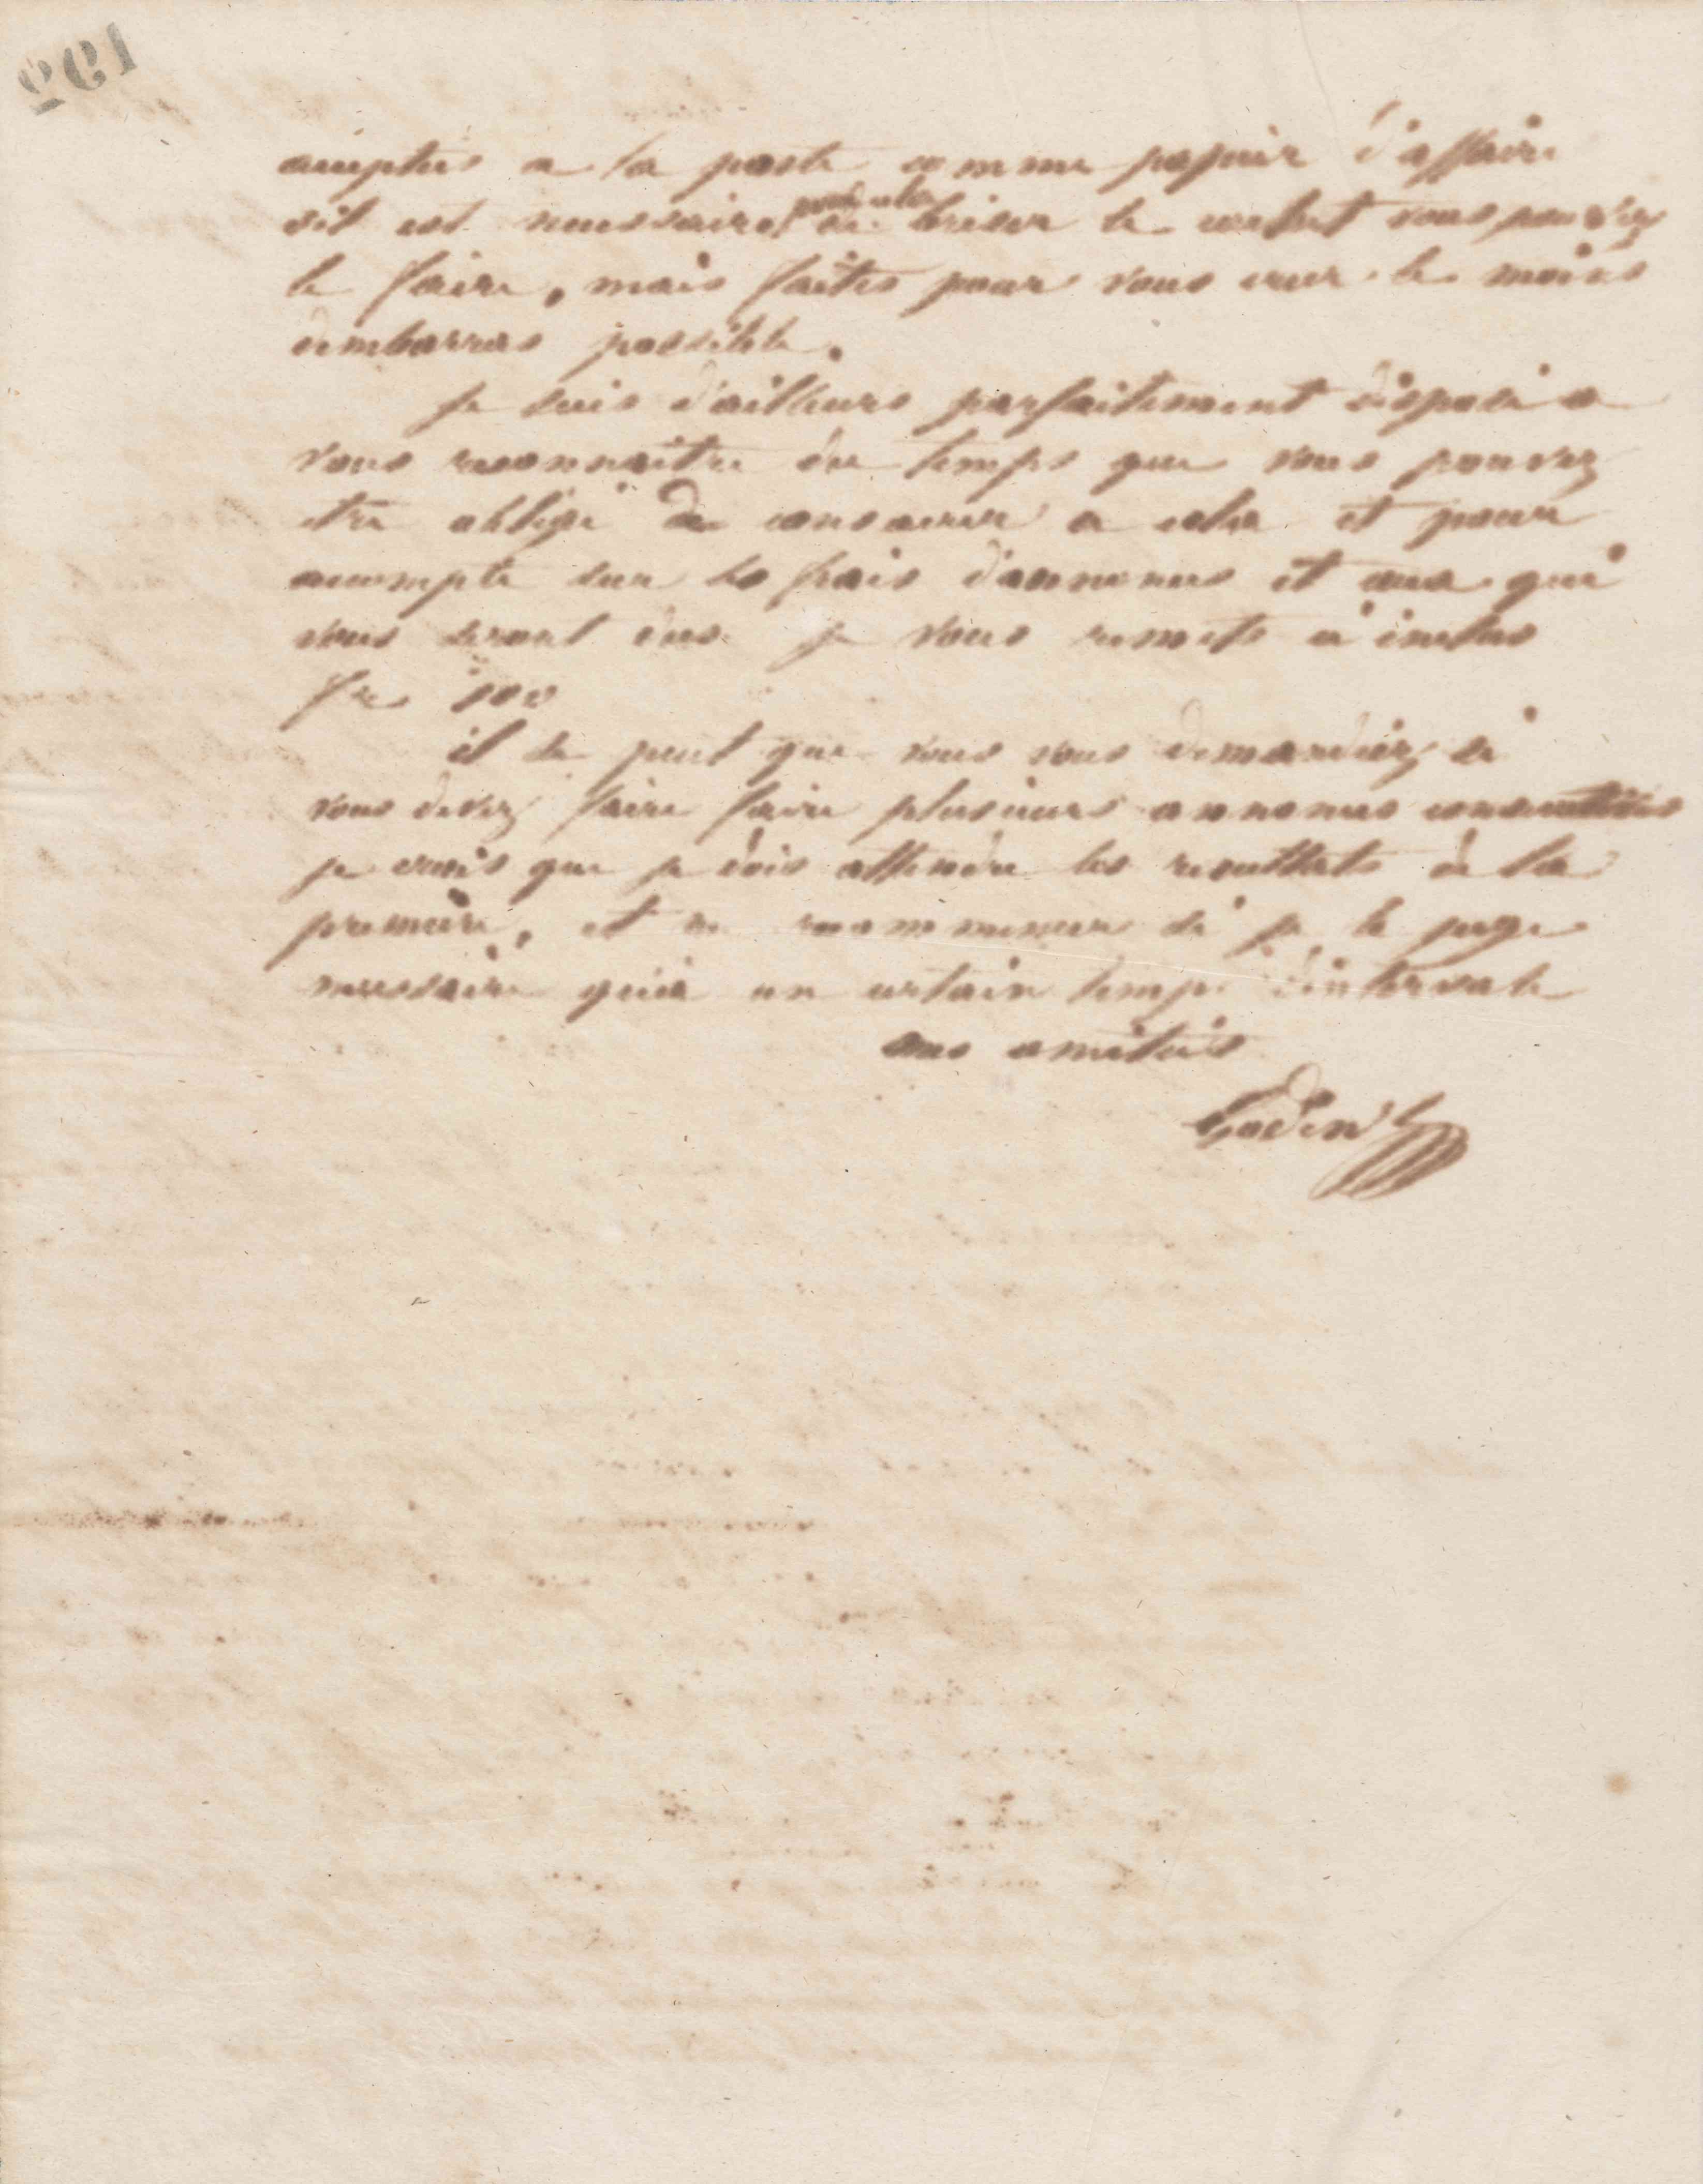 acceptées a la poste comme papier d'affaire
s'il est necessaire pour cela de briser le cachet vous pouvez
le faire, mais faites pour vous creer le moins
d'embarras possible.
je suis d'ailleurs parfaitement disposé a
vous reconnaitre du temps que vous pouvez
etre obligé de consacrer a cela et pour
accompte sur les frais d'annonces et ceux qui
vous seront dus je vous remets ci inclus
frs 100
il se peut que vous vous demandiez si
vous devez faire faire plusieurs annonces consecutives
je crois que je dois attendre les resultats de la
premiere, et ne recommencer si je le juge
necessaire qu'a un certain temps d'intervale
mes amitiés
Godin